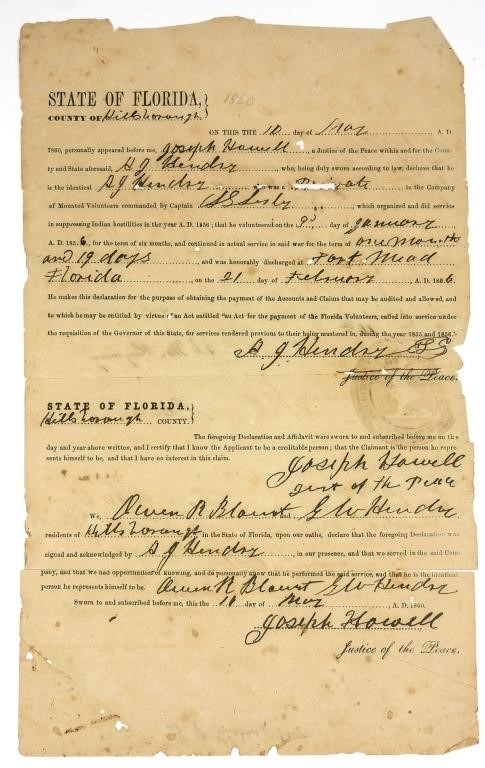 STATE OF FLORIDA,} 1860
COUNTY OF Hillsborough
ON THIS THE 10 day of May A. D.
1860, personally appeared before me, Joseph Howell, a Justice of the Peace within and for the Coun-
ty and State aforesaid, A J Hendry, who, being duly sworn according to law, declares that he
is the identical A J Hendry who was a Private in the Company
of Mounted Volunteers commanded by Captain L G Lesly, which organized and did service
in suppressing Indian hostilities in the year A. D. 1856; that he volunteered on the 3d day of January
A. D. 1856, for the term of six months, and continued in actual service in said war for the term of one month
and 19 days, and was honorably discharged at Fort Mead
Florida on the 21 day of February A. D. 1856.
He makes this declaration for the purpose of obtaining the payment of the Accounts and Claims that may be audited and allowed, and
to which he may be entitled by virtue of an Act entitled "an Act for the payment of the Florida Volunteers, called into service under
the requisition of the Governor of this State, for services rendered previous to their being mustered in, during the year 1855 and 1856."
A J Hendry
Justice of the Peace.
STATE OF FLORIDA,}
Hillsborough COUNTY.
The foregoing Declaration and Affidavit were sworn to and subscribed before me on the
day and year above written, and I certify that I know the Applicant to be a creditable person; that the Claimant is the person he repre-
sents himself to be, and that I have no interest in this claim.
Joseph Howell
Just of the Peace
We, Owen R Blount and G W Hendry
residents of Hillsborough in the State of Florida, upon our oaths, declare that the foregoing Declaration was
signed and acknowledged by A J Hendry, in our presence, and that we served in the said Com-
pany, and that we had opportunities of knowing, and do personally know that he performed the said service, and that he is the identical
person he represents himself to be. Owen R Blount G W Hendry
Sworn to and subscribed before me, this the 10 day of May, A. D. 1860.
Joseph Howell
Justice of the Peace.